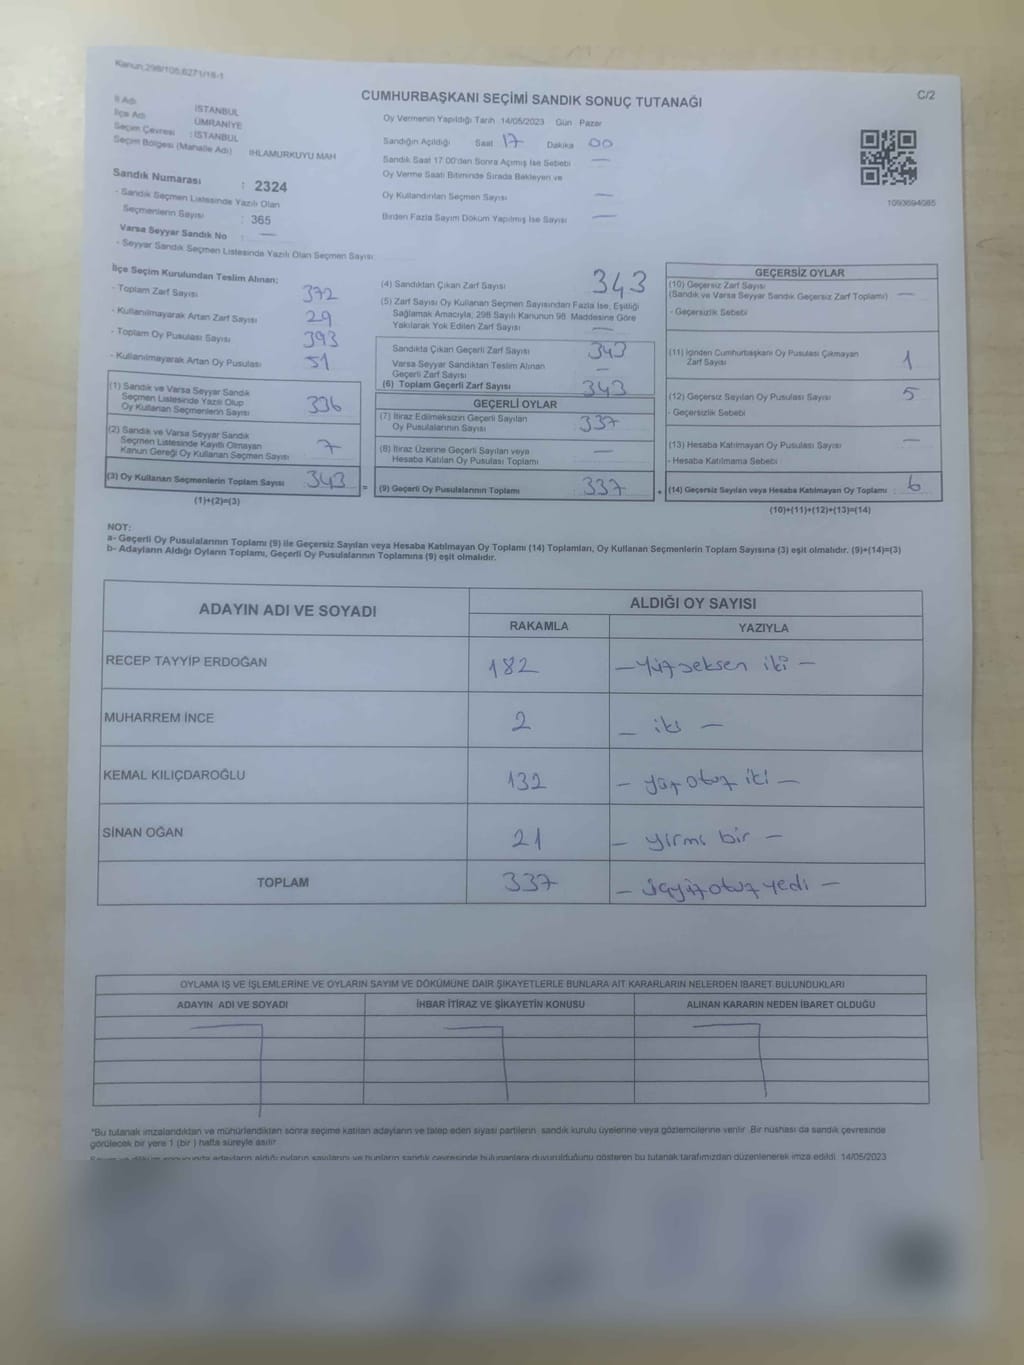 Kanun:298/105,6271/18-1
C/2
CUMHURBAŞKANI SEÇİMİ SANDIK SONUÇ TUTANAĞI
İl Adı İSTANBUL
İlçe Adı ÜMRANİYE
Seçim Çevresi : İSTANBUL
Seçim Bölgesi (Mahalle Adı) IHLAMURKUYU MAH
Sandık Numarası : 2324
- Sandık Seçmen Listesinde Yazılı Olan
Seçmenlerin Sayısı : 365
Varsa Seyyar Sandık No : —
- Seyyar Sandık Seçmen Listesinde Yazılı Olan Seçmen Sayısı:
Oy Vermenin Yapıldığı Tarih 14/05/2023 Gün Pazar
Sandığın Açıldığı Saat 17 Dakika 00
Sandık Saat 17:00'den Sonra Açımış İse Sebebi —
Oy Verme Saati Bitiminde Sırada Bekleyen ve
Oy Kullandırılan Seçmen Sayısı —
Birden Fazla Sayım Döküm Yapılmış İse Sayısı —
1093694085
İlçe Seçim Kurulundan Teslim Alınan:
- Toplam Zarf Sayısı 372
- Kullanılmayarak Artan Zarf Sayısı 29
- Toplam Oy Pusulası Sayısı 393
- Kullanılmayarak Artan Oy Pusulası 51
(1) Sandık ve Varsa Seyyar Sandık
Seçmen Listesinde Yazılı Olup
Oy Kullanan Seçmenlerin Sayısı 336
(2) Sandık ve Varsa Seyyar Sandık
Seçmen Listesinde Kayıtlı Olmayan
Kanun Gereği Oy Kullanan Seçmen Sayısı 7
(3) Oy Kullanan Seçmenlerin Toplam Sayısı 343
(1)+(2)=(3)
(4) Sandıktan Çıkan Zarf Sayısı 343
(5) Zarf Sayısı Oy Kullanan Seçmen Sayısından Fazla İse, Eşitliği
Sağlamak Amacıyla, 298 Sayılı Kanunun 98. Maddesine Göre
Yakılarak Yok Edilen Zarf Sayısı —
Sandıkta Çıkan Geçerli Zarf Sayısı 343
Varsa Seyyar Sandıktan Teslim Alınan
Geçerli Zarf Sayısı —
(6) Toplam Geçerli Zarf Sayısı 343
GEÇERLİ OYLAR
(7) İtiraz Edilmeksizin Geçerli Sayılan
Oy Pusulalarının Sayısı 337
(8) İtiraz Üzerine Geçerli Sayılan veya
Hesaba Katılan Oy Pusulası Toplamı —
= (9) Geçerli Oy Pusulalarının Toplamı 337 +
GEÇERSİZ OYLAR
(10) Geçersiz Zarf Sayısı
(Sandık ve Varsa Seyyar Sandık Geçersiz Zarf Toplamı) —
- Geçersizlik Sebebi
(11) İçinden Cumhurbaşkanı Oy Pusulası Çıkmayan
Zarf Sayısı 1
(12) Geçersiz Sayılan Oy Pusulası Sayısı 5
- Geçersizlik Sebebi
(13) Hesaba Katılmayan Oy Pusulası Sayısı —
- Hesaba Katılmama Sebebi
(14) Geçersiz Sayılan veya Hesaba Katılmayan Oy Toplamı : 6
(10)+(11)+(12)+(13)=(14)
NOT:
a- Geçerli Oy Pusulalarının Toplamı (9) ile Geçersiz Sayılan veya Hesaba Katılmayan Oy Toplamı (14) Toplamları, Oy Kullanan Seçmenlerin Toplam Sayısına (3) eşit olmalıdır. (9)+(14)=(3)
b- Adayların Aldığı Oyların Toplamı, Geçerli Oy Pusulalarının Toplamına (9) eşit olmalıdır.
ADAYIN ADI VE SOYADI ALDIĞI OY SAYISI
RAKAMLA YAZIYLA
RECEP TAYYİP ERDOĞAN 182 — Yüzseksen iki —
MUHARREM İNCE 2 — iki —
KEMAL KILIÇDAROĞLU 132 — yüz otuz iki —
SİNAN OĞAN 21 — yirmi bir —
TOPLAM 337 — üçyüzotuz yedi —
OYLAMA İŞ VE İŞLEMLERİNE VE OYLARIN SAYIM VE DÖKÜMÜNE DAİR ŞİKAYETLERLE BUNLARA AİT KARARLARIN NELERDEN İBARET BULUNDUKLARI
ADAYIN ADI VE SOYADI İHBAR İTİRAZ VE ŞİKAYETİN KONUSU ALINAN KARARIN NEDEN İBARET OLDUĞU
"Bu tutanak imzalandıktan ve mühürlendikten sonra seçime katılan adayların ve talep eden siyasi partilerin, sandık kurulu üyelerine veya gözlemcilerine verilir. Bir nüshası da sandık çevresinde
görülecek bir yere 1 (bir ) hafta süreyle asılır.
Sayım ve döküm sonucunda adayların aldığı oyların sayılarını ve bunların sandık çevresinde bulunanlara duyurulduğunu gösteren bu tutanak tarafımızdan düzenlenerek imza edildi. 14/05/2023